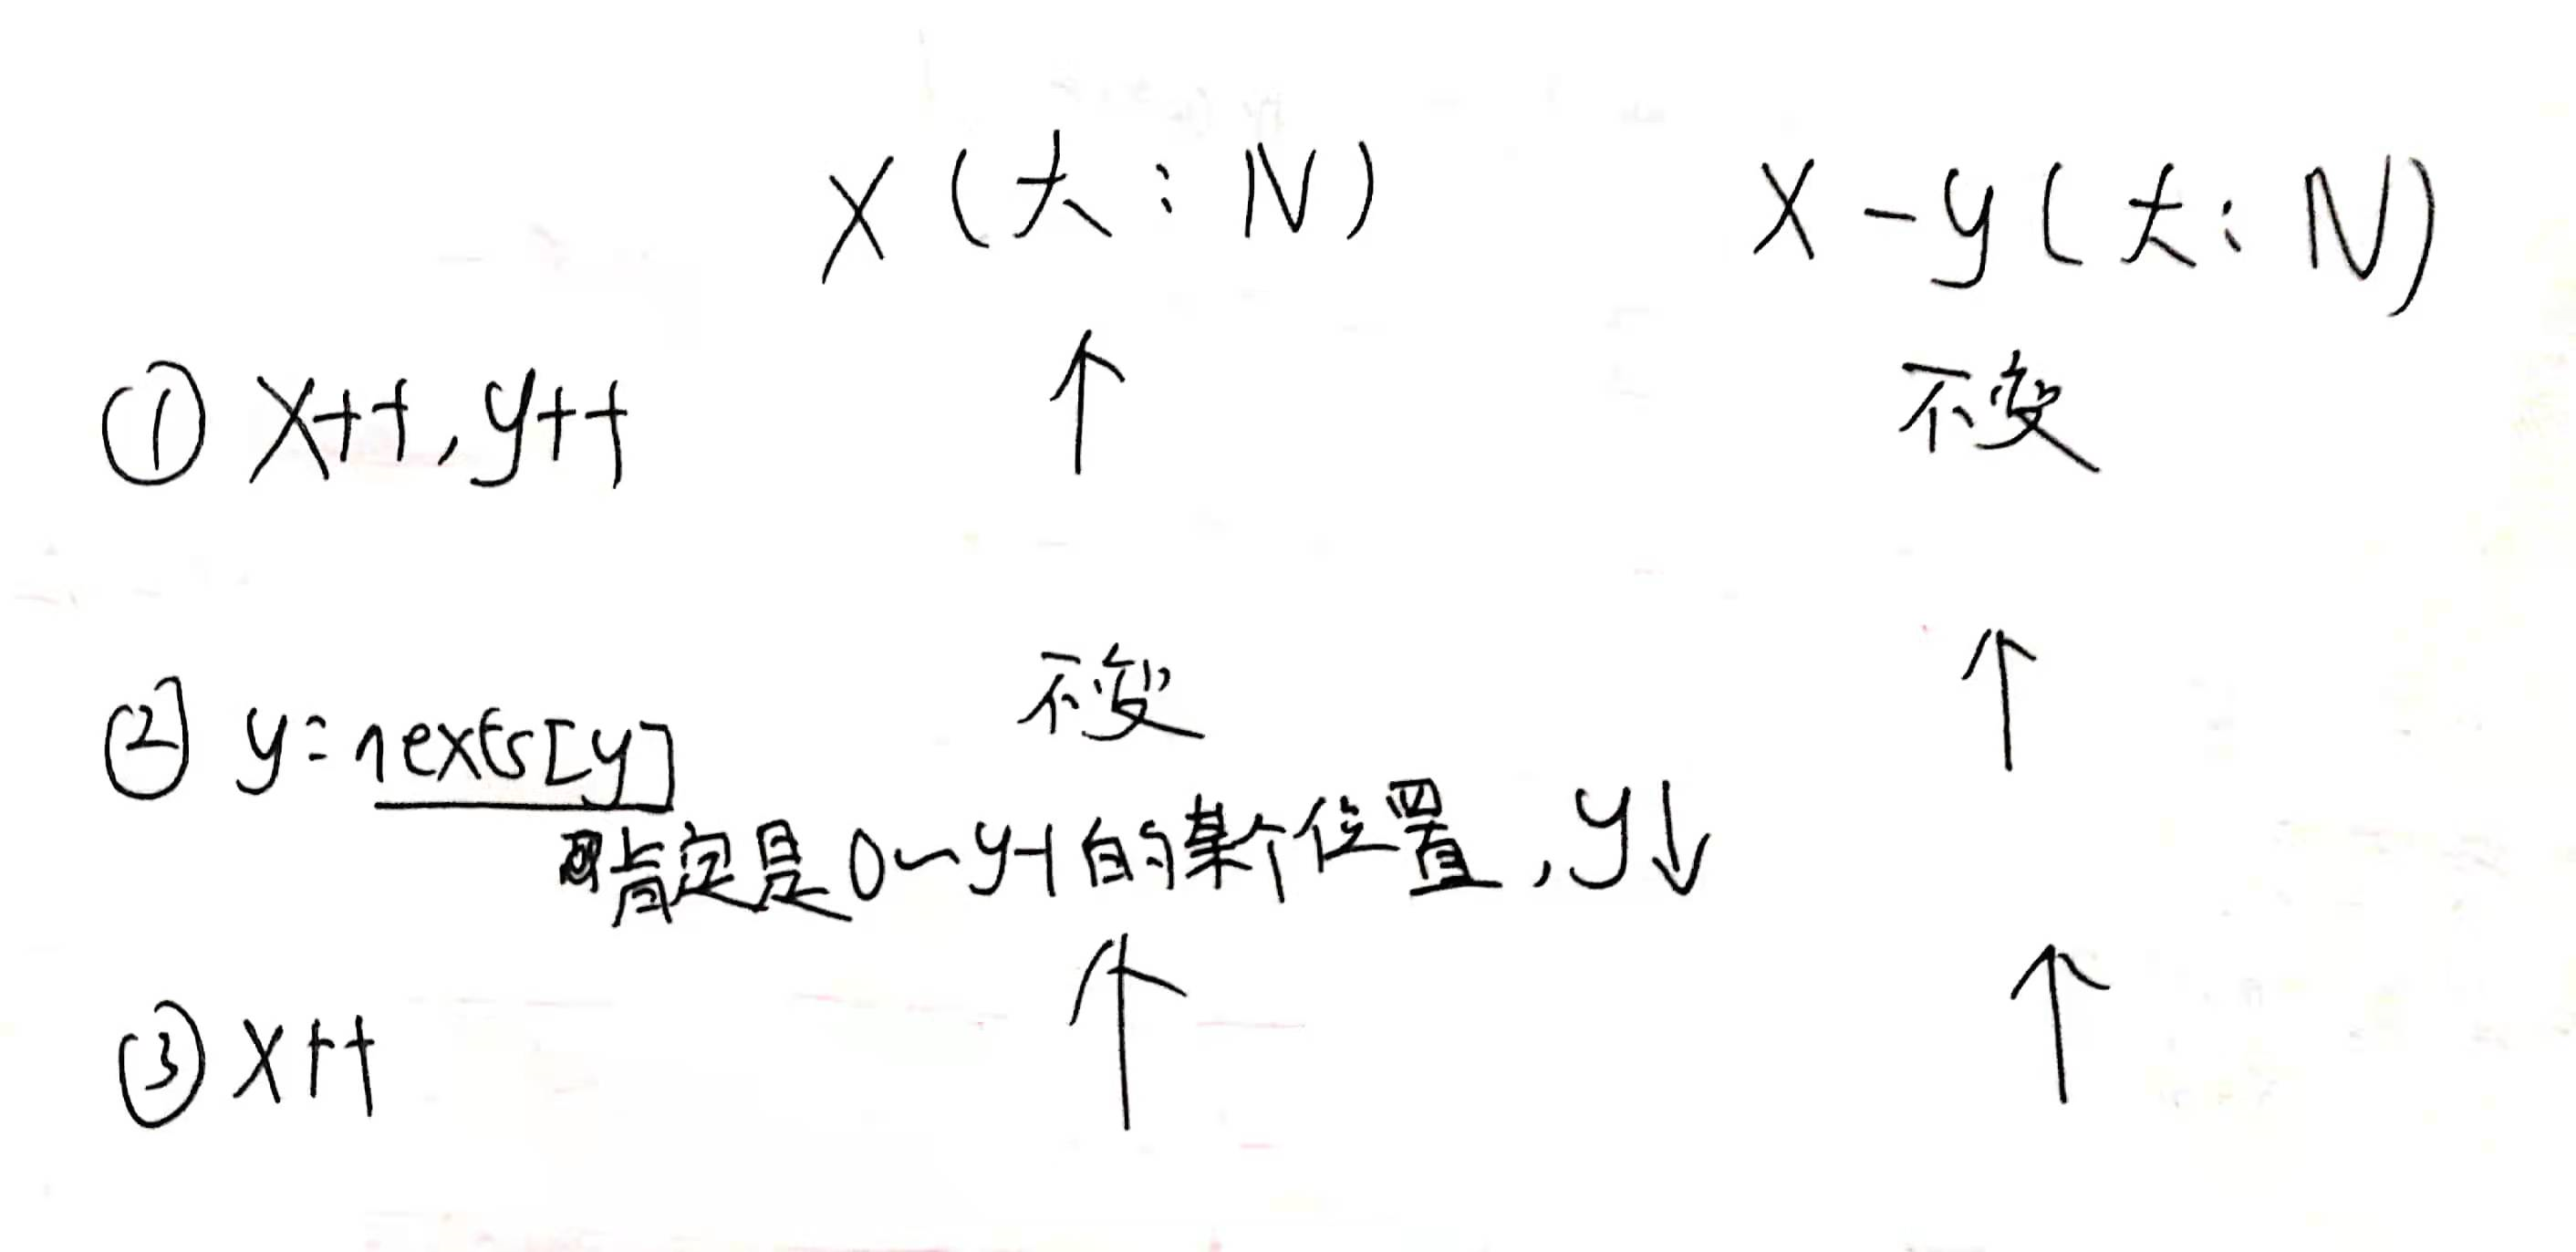 X（大：N） X-y（大：N）
① X++,y++ ↑ 不变
② y=nexts[y] 不变 ↑
肯定是0~y-1的某个位置,y↓
③ X++ ↑ ↑